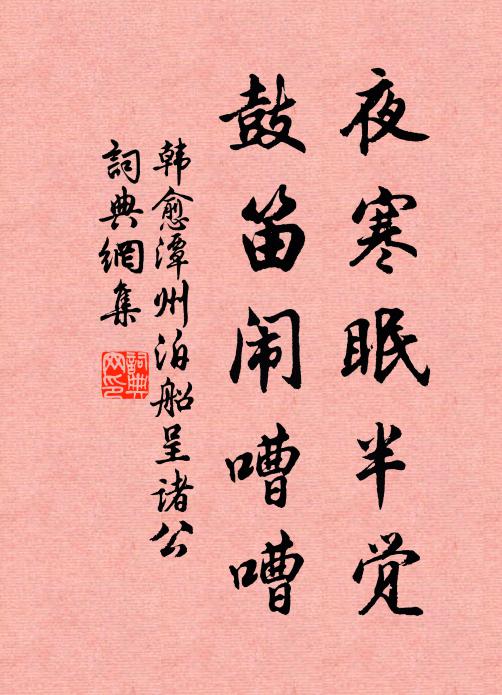 夜寒眠半觉
鼓笛闹嘈嘈
韩愈潭州泊船呈诸公
詞典網集
詞典
网印